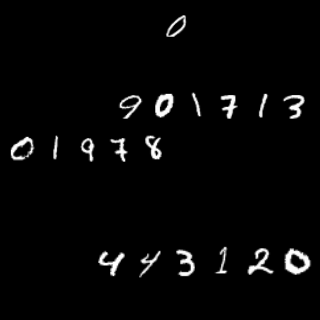 0
901713
01978
443120